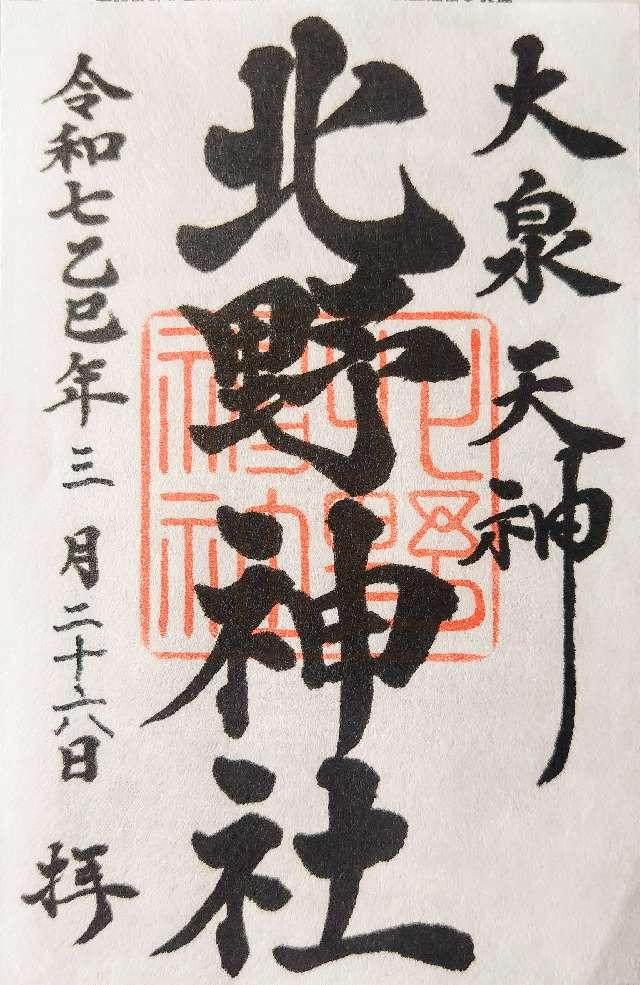 大泉天神
北野神社
北野神社
令和七乙巳年三月二十六日 拝